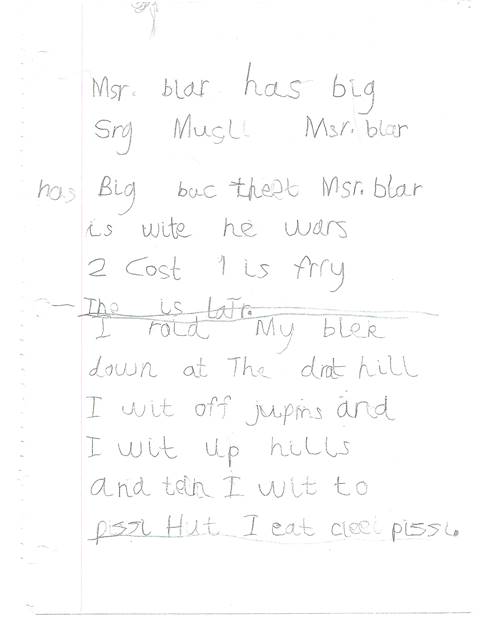 Msr. blar has big
Srg Musll Msr. blar
has Big bac theat Msr. blar
is wite he wars
2 Cost 1 is frry
The is latr.
I rold My blek
down at The drat hill
I wit off jupins and
I wit up hills
and teln I wit to
pissl Hut I eat cleel pissl.